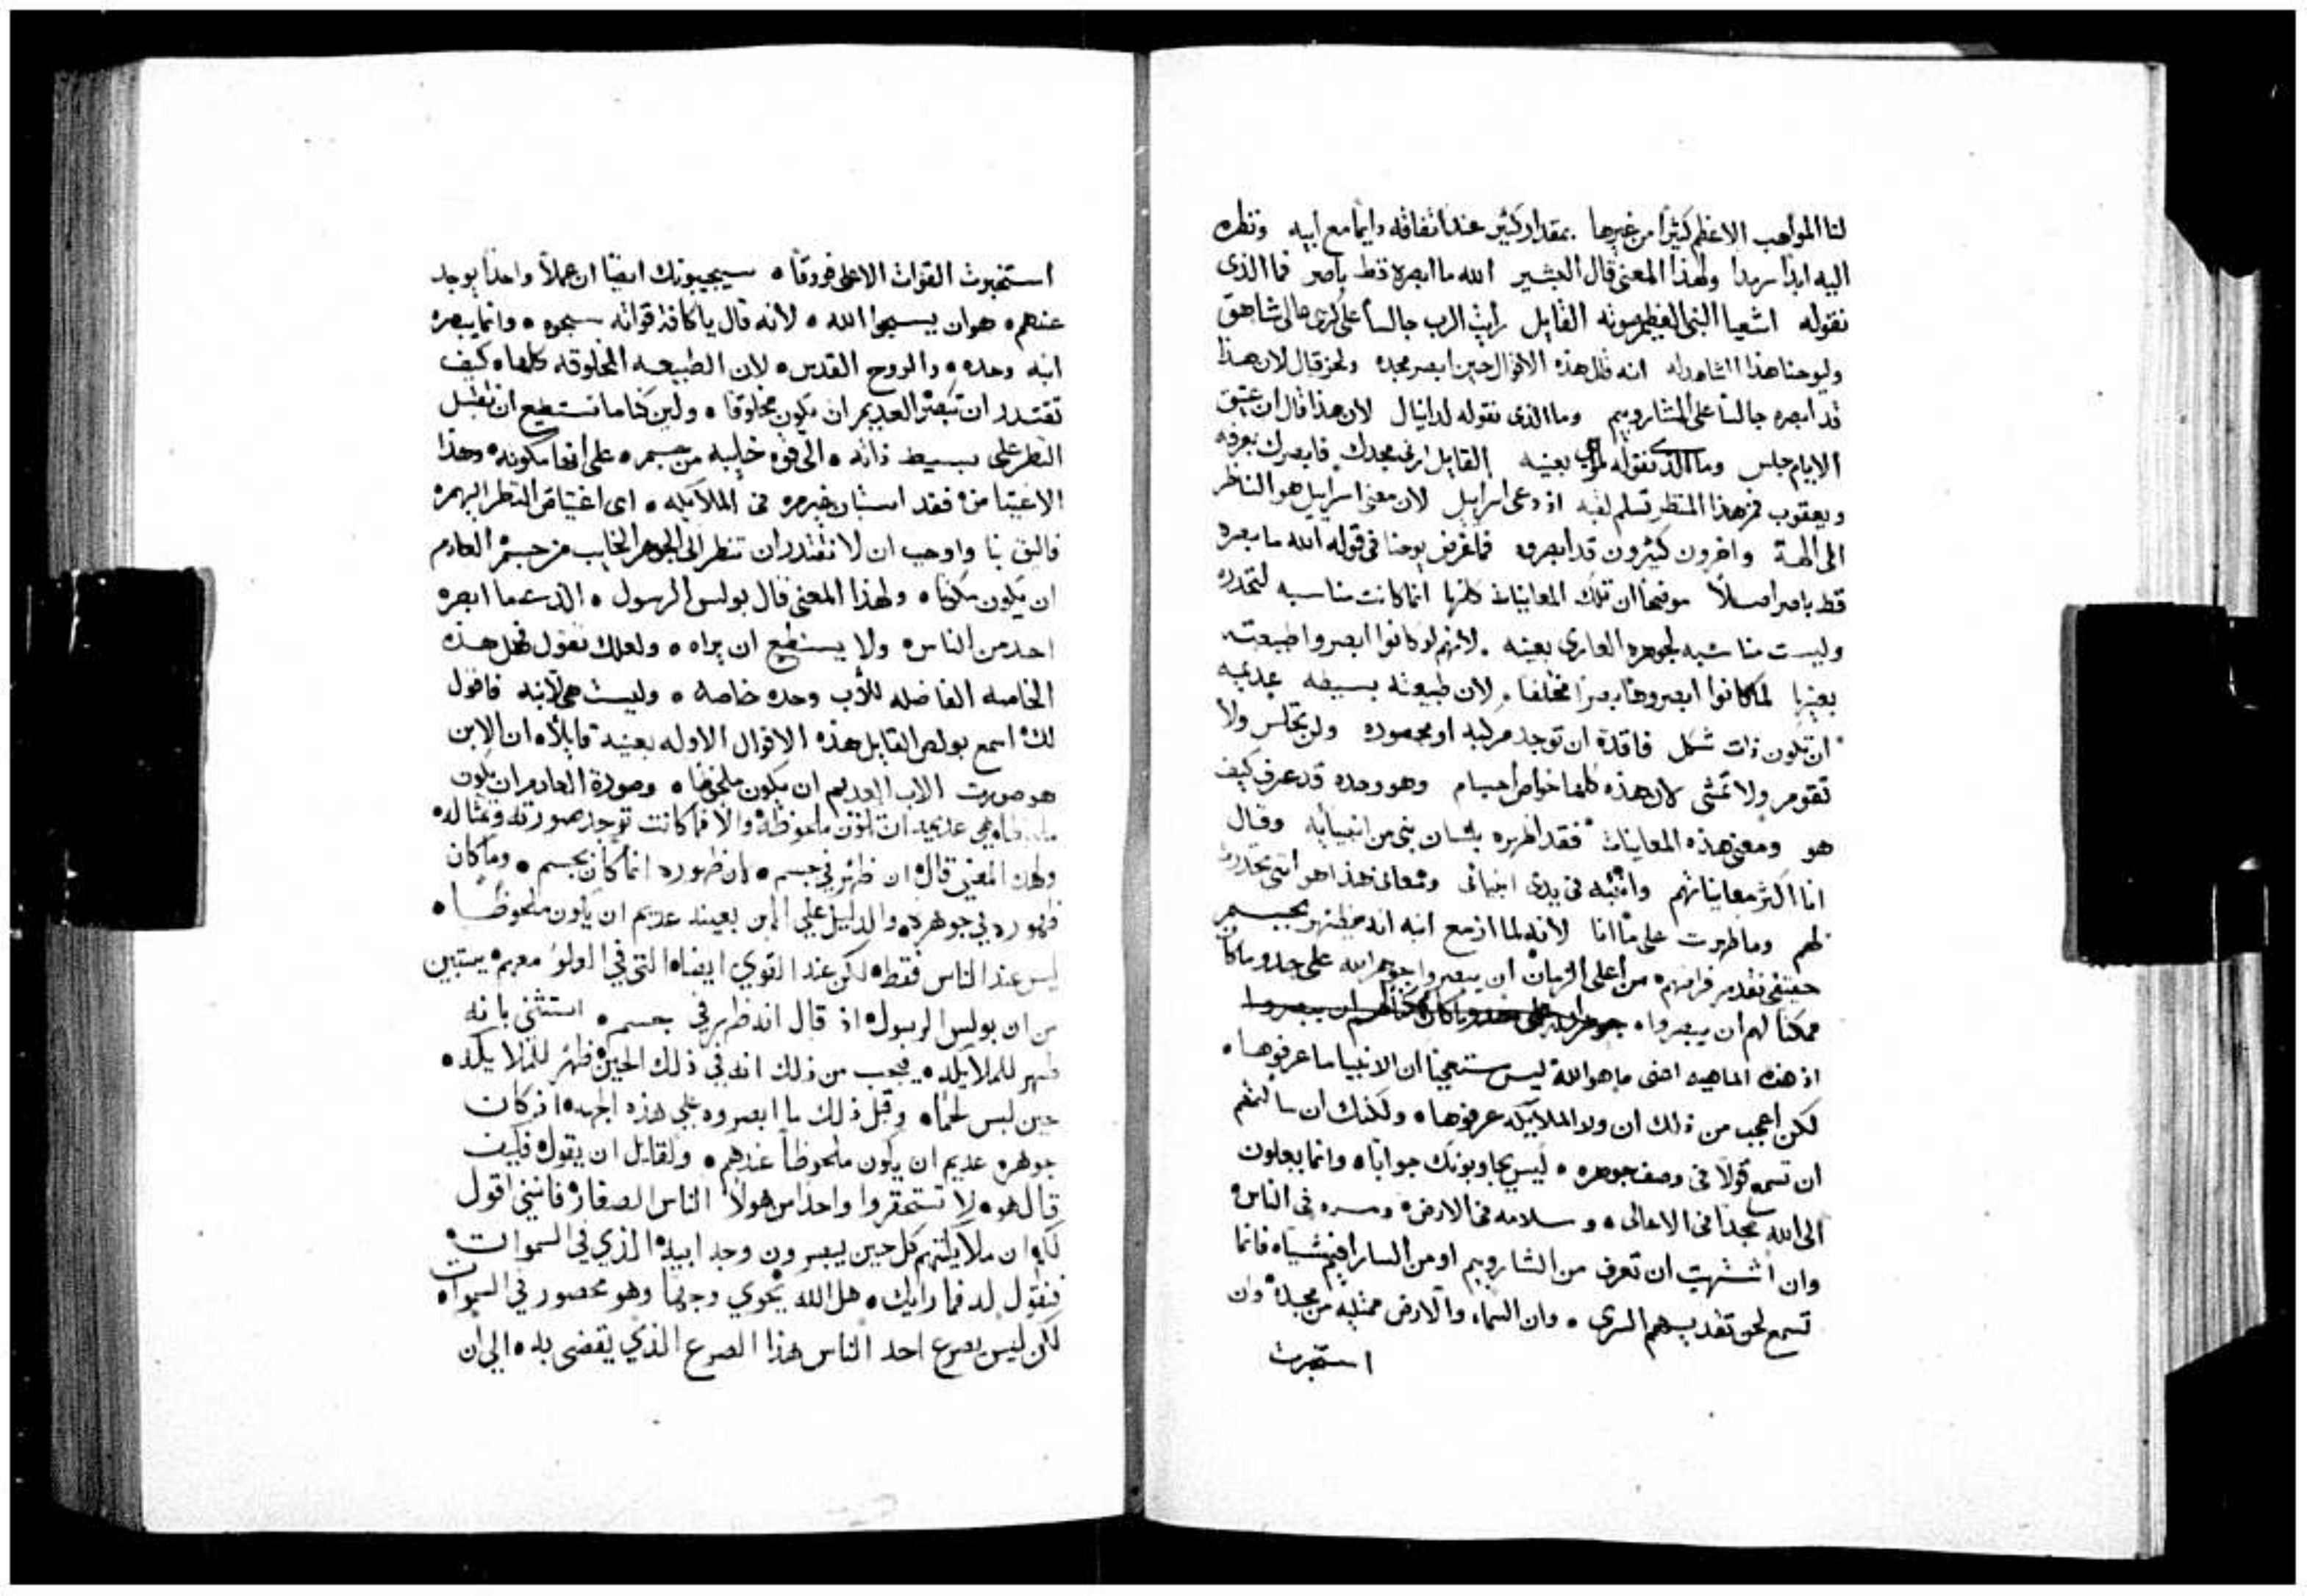 لنا المواهب الاعظم كثيرًا من غيرها بمقدار كثير عند اتفاقه دايما مع ابيه ونظره
اليه ابدا سرمدا ولهذا المعنى قال البشير الله ما ابصره قط باصر فما الذى
نقوله اشعيا النبى العظيم صوته القايل رأيت الرب جالسا على كرسى عالى شاهق
وليوحنا هذا الشاهد له انه قال هذه الاقوال حين ابصر مجده ولحزقيال لان هذا
قد ابصره جالسا على الشاروبيم وما الذى نقوله لدانيال لان هذا قال ان عتيق
الايام جلس وما الذى نقوله لموسى بعينه القايل ارنى مجدك فابصرك بعرفه
ويعقوب فمن هذا المنظر تسلم لقبه اذ دعى اسراييل لان معنى اسراييل هو الناظر
الى الهه واخرون كثيرون قد ابصروه فما غرض يوحنا فى قوله الله ما بصره
قط باصر اصلًا موضحا ان تلك المعاينات كلها انما كانت مناسبه لتحدره
وليست مناسبه لجوهره العارى بعينه . لأنهم لو كانوا ابصروا طبيعته
بعينها لما كانوا ابصروها بصرا مختلفا . لان طبيعته بسيطه عديمه
ان تكون ذات شكل فاقدة ان توجد مركبه او محصوره ولن تجلس ولا
تقوم ولا تمشى لان هذه كلها خواص اجسام وهو وحده قد عرف كيف
هو ومعنى هذه المعاينات فقد اظهره بلسان نبى من انبيايه وقال
انا اكثر معايناتهم واشبه فى يدى انبيائى ومعانى هذا هو اننى تحدرت
لهم وما ظهرت على ما انا لأنه لما ازمع ابنه انه يظهر بجسم
حقيقى تقدم فرامهم من اعلى الزمان ان يبصروا جوهر الله على حد وما كان
ممكنا لهم ان يبصروا ه جوهر الله على حد وما كان ممكنا لهم ان يبصروا
اذ هذه الماهيه اعنى ما هو الله ليس يستعجبنا ان الانبيا ما عرفوها ه
لكن اعجب من ذلك ان ولا الملاييكه عرفوها ه ولكنك ان سالتهم
ان تسمع قولًا فى وصف جوهره ه ليس يجاوبونك جوابا ه وانما يبعلون
الى الله مجدا فى الاعالى ه وسلامه فى الارض ه ومسره فى الناس ه
وان اشتهيت ان تعرف من الشاروبيم او من السارافيم شيا ه فانما
تسمع لحن تقديسهم السرى ه وان السماء والارض ممتليه من مجده وان
استخبرت
استخبرت القوات الاعلى فروقا ه سيجيبونك ايضا ان عملاً واحدا يوجد
عندهم ه هو ان يسبحوا الله ه لأنه قال يا كافة قواته سبحوه ه وانما يبصره
ابنه وحده ه والروح القدس ه لان الطبيعه المخلوقه كلها ه كيف
تقتدر ان تبصر العديم ان يكون مخلوقا ه ولين كنا ما نستطيع ان نقبل
النظر على بسيط ذاته ه الى قوه خايبه من جسم ه على انها مكونه ه وهذا
الاعتيا من ه فقد استبان خبره فى الملاييكه ه اى اعتياص النظر اليهم ه
فاليق بنا واوجب ان لا نقتدر ان تنظر الى الجوهر الخايب من جسم العادم
ان يكون مكونا ه ولهذا المعنى قال بولس الرسول ه الذى ما ابصره
احد من الناس ه ولا يستطيع ان يراه ه ولعلك تقول فهل هذه
الخاصه الفاضله للأب وحده خاصه ه وليست هى لابنه فاقول
لك ه اسمع بولص القايل هذه الاقوال الاوله بعينه قايلأ ه ان الابن
هو صورت الاب العديم ان يكون ملحوظا ه وصورة العادم ان يكون
ملحوظا ه هى عديمه ان تكون ملحوظه ه والا فما كانت توجد صورته ومثاله ه
ولهذا المعنى قال ه ان ظهر فى جسم ه لان ظهوره انما كان بجسم ه وما كان
ظهوره فى جوهره ه والدليل على الابن بعينه عديم ان يكون ملحوظا ه
ليس عند الناس فقط ه لكن عند القوي ايضا ه التى فى العلو معهم ه يستبين
من ان بولس الرسول ه اذ قال انه ظهر في جسم ه استثنى بانه
ظهر للملايكه ه فيجب من ذلك انه فى ذلك الحين ه ظهر للملايكه ه
حين لبس لحما ه وقبل ذلك ما ابصروه على هذه الجهه ه اذ كان
جوهره عديم ان يكون ملحوظاً عندهم ه ولقايل ان يقول ه فكيف
قال هو ه لا تستحقروا واحدا من هولا الناس الصغار ه فانني اقول
لكم ه ان ملايكتهم كل حين يبصرون وجه ابيه ه الذي فى السموات ه
فنقول له فما رايك ه هل الله يحوي وجها وهو محصور في السموات ه
لكن ليس يصرع احد الناس هذا الصرع الذي يقضى به ه الى ان